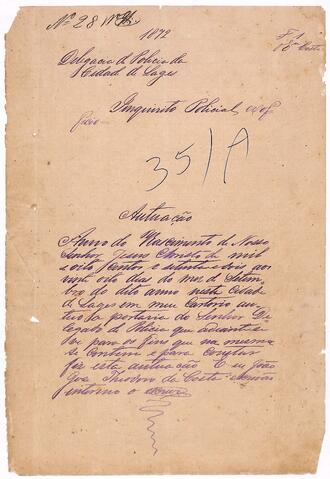 Nº 28
1872
Fl 1
Costa
Delegacia de Policia da
Cidade de Lages
Inquirito Policial
35/A
Autuação
Anno do Nascimento de Nosso
Senhor Jesus Christo de mil
oito centos e setenta e dous aos
vinte oito dias do mez de Setem
bro do dito anno nesta Cidade
de Lages em meu Cartorio au
tuo a portaria do Senhor De
legado de Policia que adiante
vai para os fins que na mesma
se contem e para constar
fiz esta autuação E eu João
José Theodoro da Costa escrivão
interino o escrevi